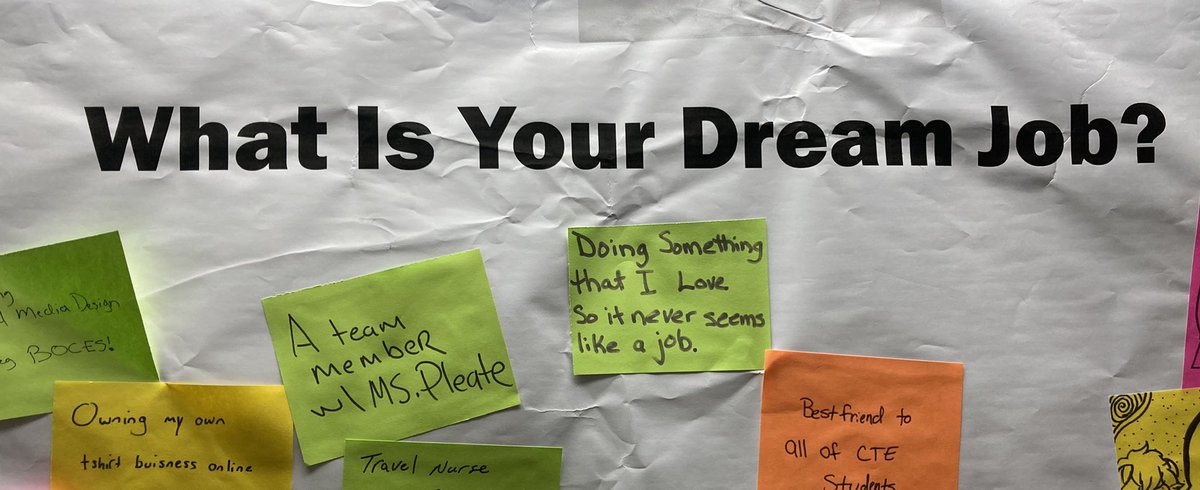 What Is Your Dream Job?
Media Design
BOCES!
Owning my own
tshirt buisness online
A team
member
w/ MS. Pleate
Travel Nurse
Doing Something
that I Love
So it never seems
like a job.
Best friend to
all of CTE
Students